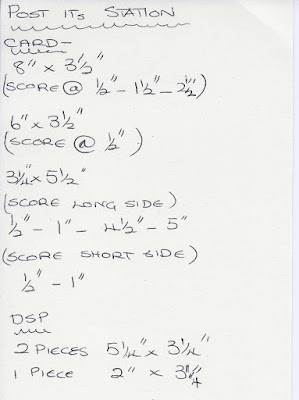 POST ITS STATION
CARD-
8" x 3½"
(SCORE @ ½" - 1½" - 2½")
6" x 3½"
(SCORE @ ½")
3¼" x 5½"
(SCORE LONG SIDE)
½" - 1" - 4½" - 5"
(SCORE SHORT SIDE)
½" - 1"
DSP
2 PIECES 5¼" x 3¼"
1 PIECE 2" x 3¼"